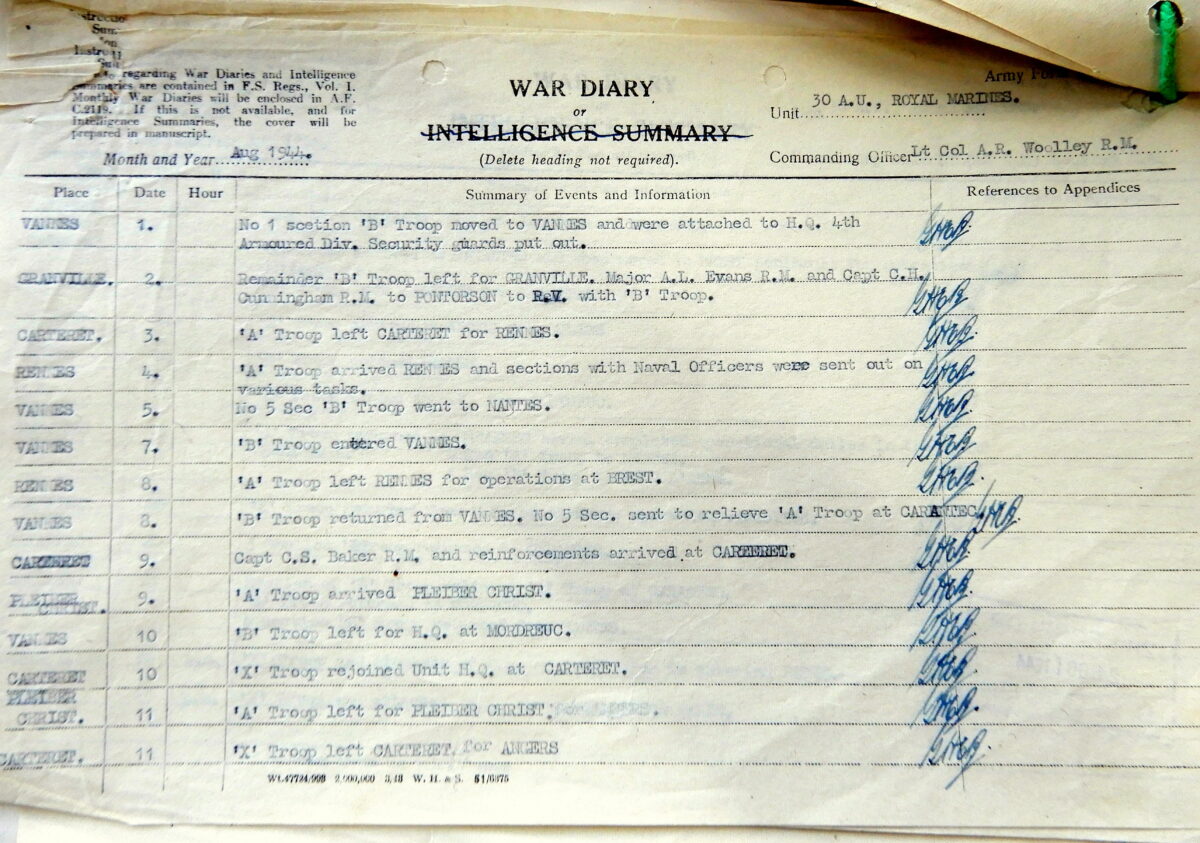 regarding War Diaries and Intelligence
Summaries are contained in F.S. Regs., Vol. I.
Monthly War Diaries will be enclosed in A.F.
C.2118. If this is not available, and for
Intelligence Summaries, the cover will be
prepared in manuscript.
WAR DIARY
or
INTELLIGENCE SUMMARY
(Delete heading not required).
Army
Unit 30 A.U., ROYAL MARINES.
Month and Year Aug 1944.
Commanding Officer Lt Col A.R. Woolley R.M.
Place Date Hour Summary of Events and Information References to Appendices
VANNES 1. No 1 scetion 'B' Troop moved to VANNES and were attached to H.Q. 4th
Armoured Div. Security guards put out.
GRANVILLE. 2. Remainder 'B' Troop left for GRANVILLE. Major A.L. Evans R.M. and Capt C.H.
Cunningham R.M. to PONTORSON to R.V. with 'B' Troop.
CARTERET. 3. 'A' Troop left CARTERET for RENNES.
RENNES 4. 'A' Troop arrived RENNES and sections with Naval Officers were sent out on
various tasks.
VANNES 5. No 5 Sec 'B' Troop went to NANTES.
VANNES 7. 'B' Troop entered VANNES.
RENNES 8. 'A' Troop left RENNES for operations at BREST.
VANNES 8. 'B' Troop returned from VANNES. No 5 Sec. sent to relieve 'A' Troop at CARANTEC
CARTERET 9. Capt C.S. Baker R.M. and reinforcements arrived at CARTERET.
PLEIBER
CHRIST. 9. 'A' Troop arrived PLEIBER CHRIST.
VANNES 10 'B' Troop left for H.Q. at MORDREUC.
CARTERET 10 'X' Troop rejoined Unit H.Q. at CARTERET.
PLEIBER
CHRIST. 11 'A' Troop left for PLEIBER CHRIST.
CARTERET. 11 'X' Troop left CARTERET for ANGERS
Wt.47724/993 2,000,000 3/43 W. H. & S. 51/6375